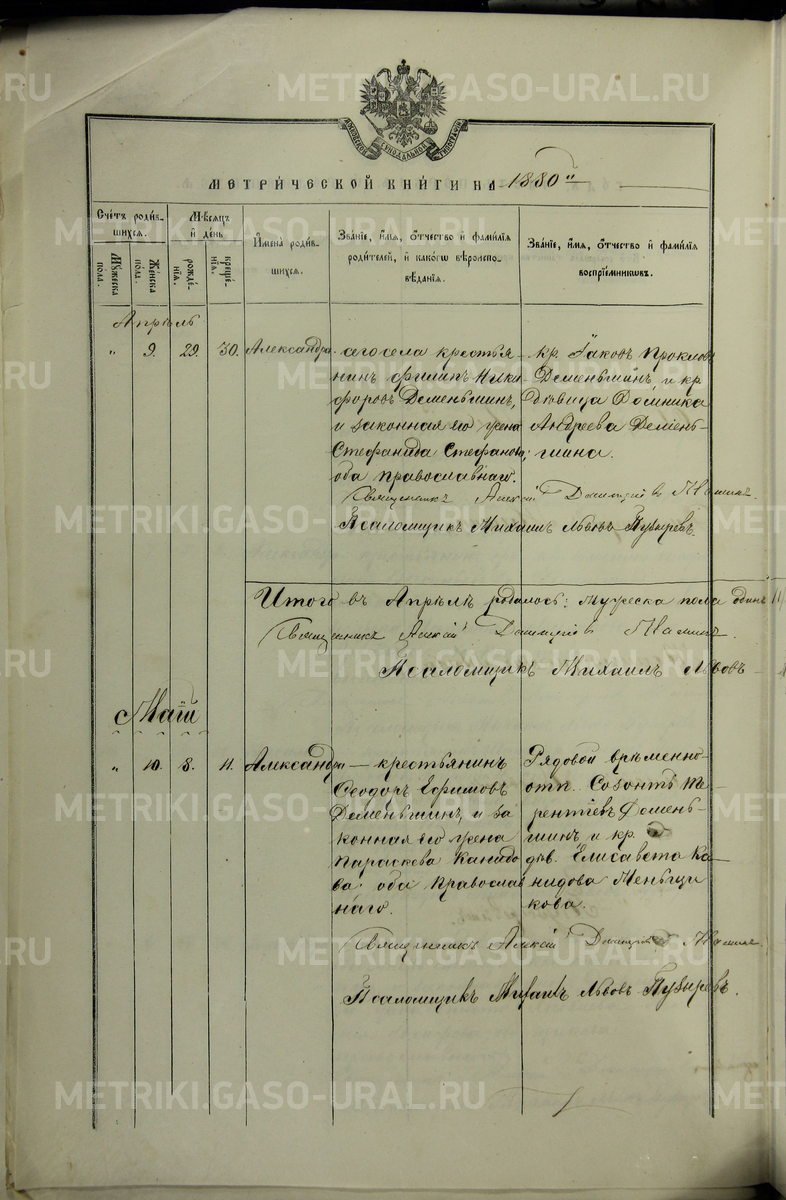 METRIKI.GASO-URAL.RU
МЕТРИ́ЧЕСКОЙ КНИ́ГИ НА 1880
Счетъ роди́в-
шихся.
Мꙋжеска
пола.
Женска
пола.
Мѣсяцъ
и день
рожде-
нїя.
креще-
нїя.
Имена роди́в-
шихся.
Званїе, имя, ѻтчество и фамилїя
родителей, и какогѡ вѣроиспо-
вѣданїя.
Званїе, имя, ѻтчество и фамилїя
воспрїемниковъ.
Апрѣль
" 9. 29. 30. Александра.
сего села крестья-
нинъ Филипъ Ники-
форовъ Деменьшинъ,
и законная его жена
Стефанида Стефанова,
оба православнаго.
кр. Іаковъ Прокловъ
Деменьшинъ, и кр.
дѣвица Домника
Андреева Демень-
шина.
Священникъ Алексій Димитріевъ
Псаломщикъ Михаилъ Львовъ Пузыревъ.
Итого въ Апрѣлѣ родилось: Мужеска пола одинъ
Священникъ Алексій Димитріевъ
Псаломщикъ Михаилъ Львовъ
Маій
" 10. 8. 11. Александра
крестьянинъ
Ѳеодоръ Ефимовъ
Деменьшинъ, и за
конная его жена
Параскева Канидо
ва оба православ
наго.
Рядовой временно-
отп. Созонтъ Те-
рентіевъ Демень-
шинъ и кр.
дѣв. Елисавета Ка-
нидова Меньщи
кова.
Священникъ Алексій Димитріевъ
Псаломщикъ Михаилъ Львовъ Пузыревъ.